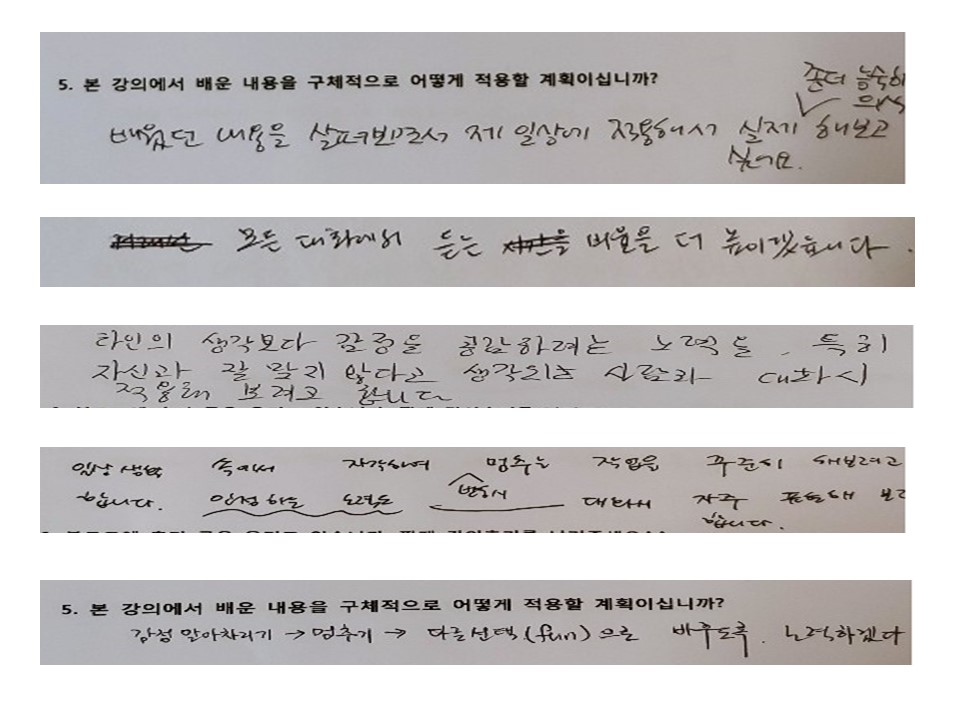 5. 본 강의에서 배운 내용을 구체적으로 어떻게 적용할 계획이십니까?
좀더 능숙히
배웠던 내용을 살펴보면서 제 일상에 적용해서 실제 해보고
싶어요.
모든 대화에서 듣는 비율을 더 높이겠습니다.
타인의 생각보다 감정을 공감하려는 노력을, 특히
자신과 잘 맞지 않다고 생각되는 사람과 대화시
적용해 보려고 합니다
일상 생활 속에서 자각하여 멈추는 작업을 꾸준히 해보려고
합니다. 인정하는 노력도 반드시 대화시 자주 표현해 보려
합니다.
5. 본 강의에서 배운 내용을 구체적으로 어떻게 적용할 계획이십니까?
감정 알아차리기 → 멈추기 → 다른선택(fun)으로 바꾸도록 노력하겠다